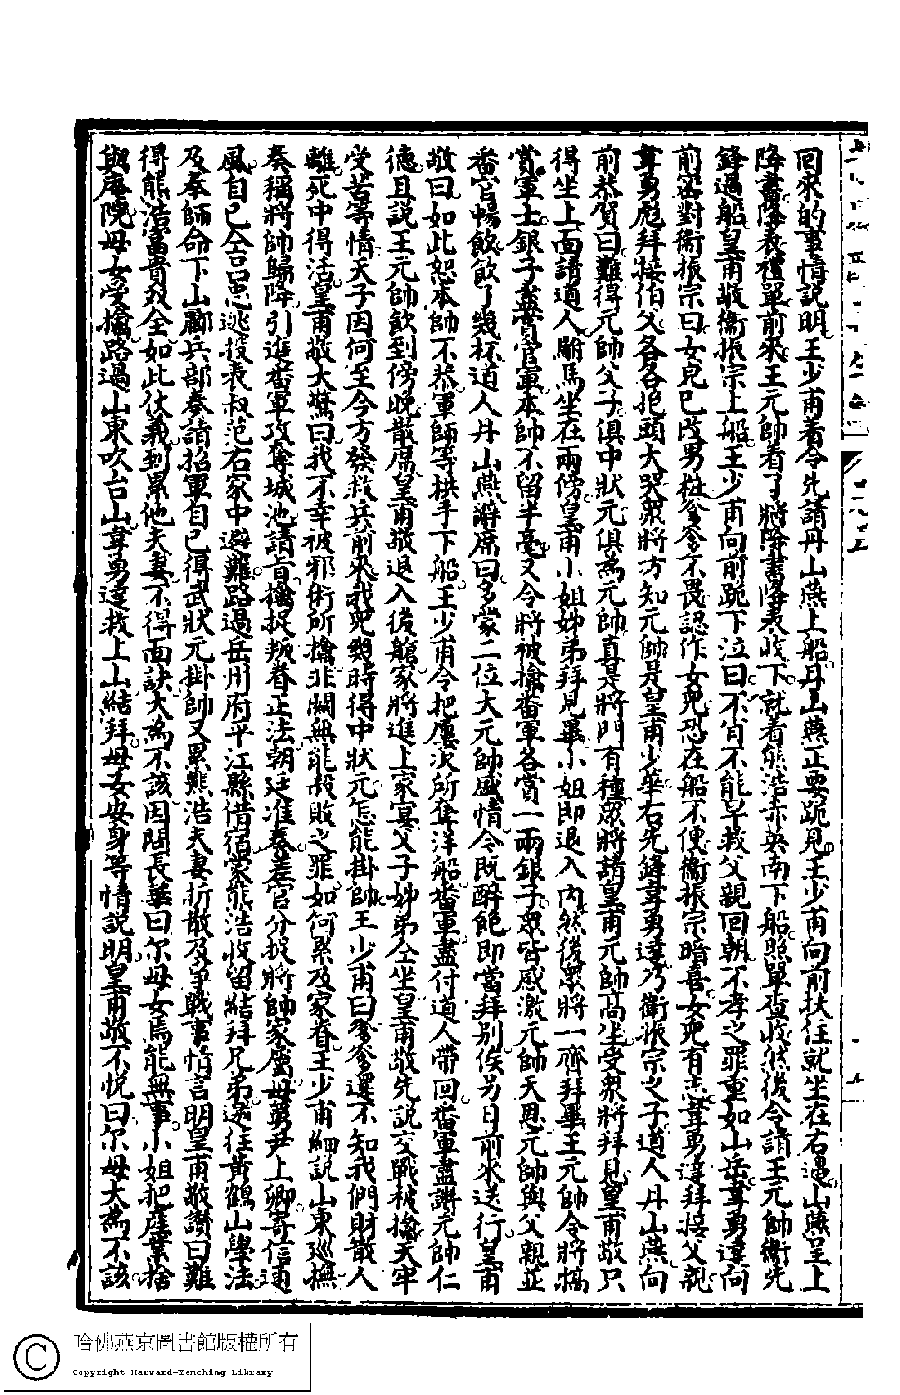 回來的事情說明王少甫着令先請丹山燕上船丹山燕正要跪見王少甫向前扶住就坐在右邊山燕呈上
降書降表禮單前來王元帥看了將降書降表收下就着熊浩赤英南下船照單查收然後令請王元帥衛先
鋒過船皇甫敬衛振宗上船王少甫向前跪下泣曰不肖不能早救父親回朝不孝之罪重如山岳韋勇達向
前密對衛振宗曰女兒已改男粧爹爹不畏認作女兒恐在船不便衛振宗暗喜女兒有志韋勇達拜接父親
韋勇彪拜接伯父各各抱頭大哭眾將方知元帥是皇甫少華右先鋒韋勇達乃衛振宗之子道人丹山燕向
前恭賀曰難得元帥父子俱中狀元俱為元帥真是將門有種眾將請皇甫元帥高坐受眾將拜見皇甫敬只
得坐上面請道人駙馬坐在兩傍皇甫小姐姊弟拜見畢小姐即退入內然後眾將一齊拜畢王元帥令將搞
賞軍士銀子盡賞官軍本帥不留半毫又令將被擒番軍各賞一兩銀子眾皆感激元帥天恩元帥與父親並
番官暢飲飲了幾杯道人丹山燕辭席曰多蒙二位大元帥盛情令既醉飽即當拜別俟另日前來送行皇甫
敬曰如此恕本帥不恭軍師等拱手下船王少甫令把屢次所奪洋船番軍盡付道人帶回番軍盡謝元帥仁
德且說王元帥飲到傍晚散席皇甫敬退入後艙家將進上家宴父子姊弟仝坐皇甫敬先說交戰被擒天牢
受苦等情天子因何至今方發救兵前來我兒幾時得中狀元怎能掛帥王少甫曰爹爹還不知我們財散人
離死中得活皇甫敬大驚曰我不幸被邪術所擒非關無能殺敗之罪如何累及家眷王少甫細說山東廵撫
奏稱將帥歸降引進番軍攻奪城池請旨擒捉叛眷正法朝廷准奏差官分捉將帥家屬母舅尹上卿寄信通
風自已仝呂忠逃投表叔范右家中避難路過岳州府平江縣借宿蒙熊浩收留結拜兄弟遂往黃鶴山學法
及奉師命下山酈兵部奏請招軍自已得武狀元掛帥又累熊浩夫妻折散及爭戰事情言明皇甫敬讚曰難
得熊浩富貴双全如此仗義到累他夫妻不得面訣大為不該因問長華曰尔母女焉能無事小姐把産業捨
與庵院母女受擒路過山東吹台山韋勇達救上山結拜母女安身等情說明皇甫敬不悅曰尔母大為不該
哈佛燕京圖書館版權所有
Copyright Harvard-Yenching Library